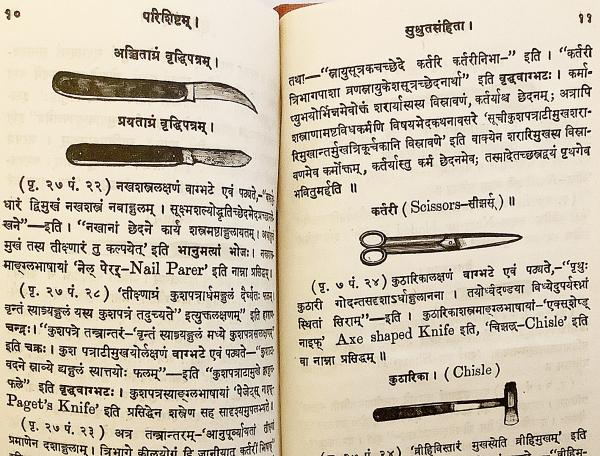 १०
परिशिष्टम् ।
अञ्चिताग्रं वृद्धिपत्रम् ।
प्रयताग्रं वृद्धिपत्रम् ।
(पृ. २७ पं. २२) नखशस्त्रलक्षणं वाग्भटे एवं पठ्यते,–“वक्र
धारं द्विमुखं नखशस्त्रं नवाङ्गुलम् । सूक्ष्मशल्योद्धृतिच्छेदभेदप्रच्छा
खने”—इति । “नखानां छेदने कार्यं शस्त्रमष्टाङ्गुलायतम् ।
मुखं तस्य तीक्ष्णारं तु कल्पयेत्’ इति भानुमत्यां भोजः ।
माङ्ग्लभाषायां ‘नेल् पेरर्–Nail Parer’ इति नाम्ना प्रसिद्धम् ।
(पृ. २७ पं. २८) ‘तीक्ष्णाग्रं कुशपत्रार्धमङ्गुलं दैर्घ्यतः
वृन्तं स्याद्व्यङ्गुलं यस्य कुशपत्रं तदुच्यते” इत्युक्तलक्षणम्”
चन्द्रः । “कुशपत्रे तन्त्रान्तरं–‘वृन्तं स्याद्व्यङ्गुलं मध्ये कुशपत्रसलक्षणम्
इति चक्रः । कुश पत्राटीमुखयोर्लक्षणं वाग्भटे एवं पठ्यते–“कुशाटा
वदने स्राव्ये द्व्यङ्गुलं स्यात्तयोः फलम्”–इति । “कुशपत्राटामुखे
फले” इति वृद्धवाग्भटः । कुशपत्रस्याङ्ग्लभाषायां ‘पेजेट्स्
Paget's Knife’ इति प्रसिद्धेन शस्त्रेण सह सादृश्यमुपलभ्यते ।
(पृ. २७ पं. २३) अत्र तन्त्रान्तरम्–‘आनुपूर्व्यायता
प्रमाणेन दशाङ्गुलाम् । त्रिभागे कीलयोगं हि जानीयात् कर्तरीं
सुश्रुतसंहिता ।
११
तथा–“स्नायुसूत्रकचच्छेदे कर्तरि कर्तरीनिभा–” इति । “कर्तरी
त्रिभागपाशा व्रणस्नायुकेशसूत्रच्छेदनार्था” इति वृद्धवाग्भटः । कर्मा
प्युभयोर्भिन्नमेवोक्तं, शरार्यास्यस्य विस्रावणं, कर्तर्याश्च छेदनम्; अत्रापि
शस्त्राणामष्टविधकर्मणि विषयभेदकथनावसरे ‘सूचीकुशपत्राटीमुखशरा
रिमुखान्तर्मुखत्रिकूर्चकानि विस्रावणे’ इति वाक्येन शरारिमुखस्य विस्रा
वणमेव कर्मोक्तम्, कर्तर्यास्तु कर्म छेदनमेव; तस्मादेतच्छस्त्रद्वयं पृथगेव
भवितुमर्हति ॥
कर्तरी (Scissors–सीझर्स् ) ॥
(पृ. ७ पं. २४) कुठारिकालक्षणं वाग्भटे एवं पठ्यते,–“पृथुः
कुठारी गोदन्तसदृशाऽर्धाङ्गुलानना । तयोर्ध्वदण्डया विध्येदुपर्यस्थ्नां
स्थितां सिराम्”–इति । कुठारिकाशस्त्रमाङ्ग्लभाषायां–‘एक्सशेप्ड्
नाइफ्’ Axe shaped Knife इति, ‘चिझल्–Chisle’ इति
वा नाम्ना प्रसिद्धम् ॥
कुठारिका । (Chisle)
(पृ. २७ पं. २४) “व्रीहिविस्तारं मुखस्येति व्रीहिमुखम्” इति